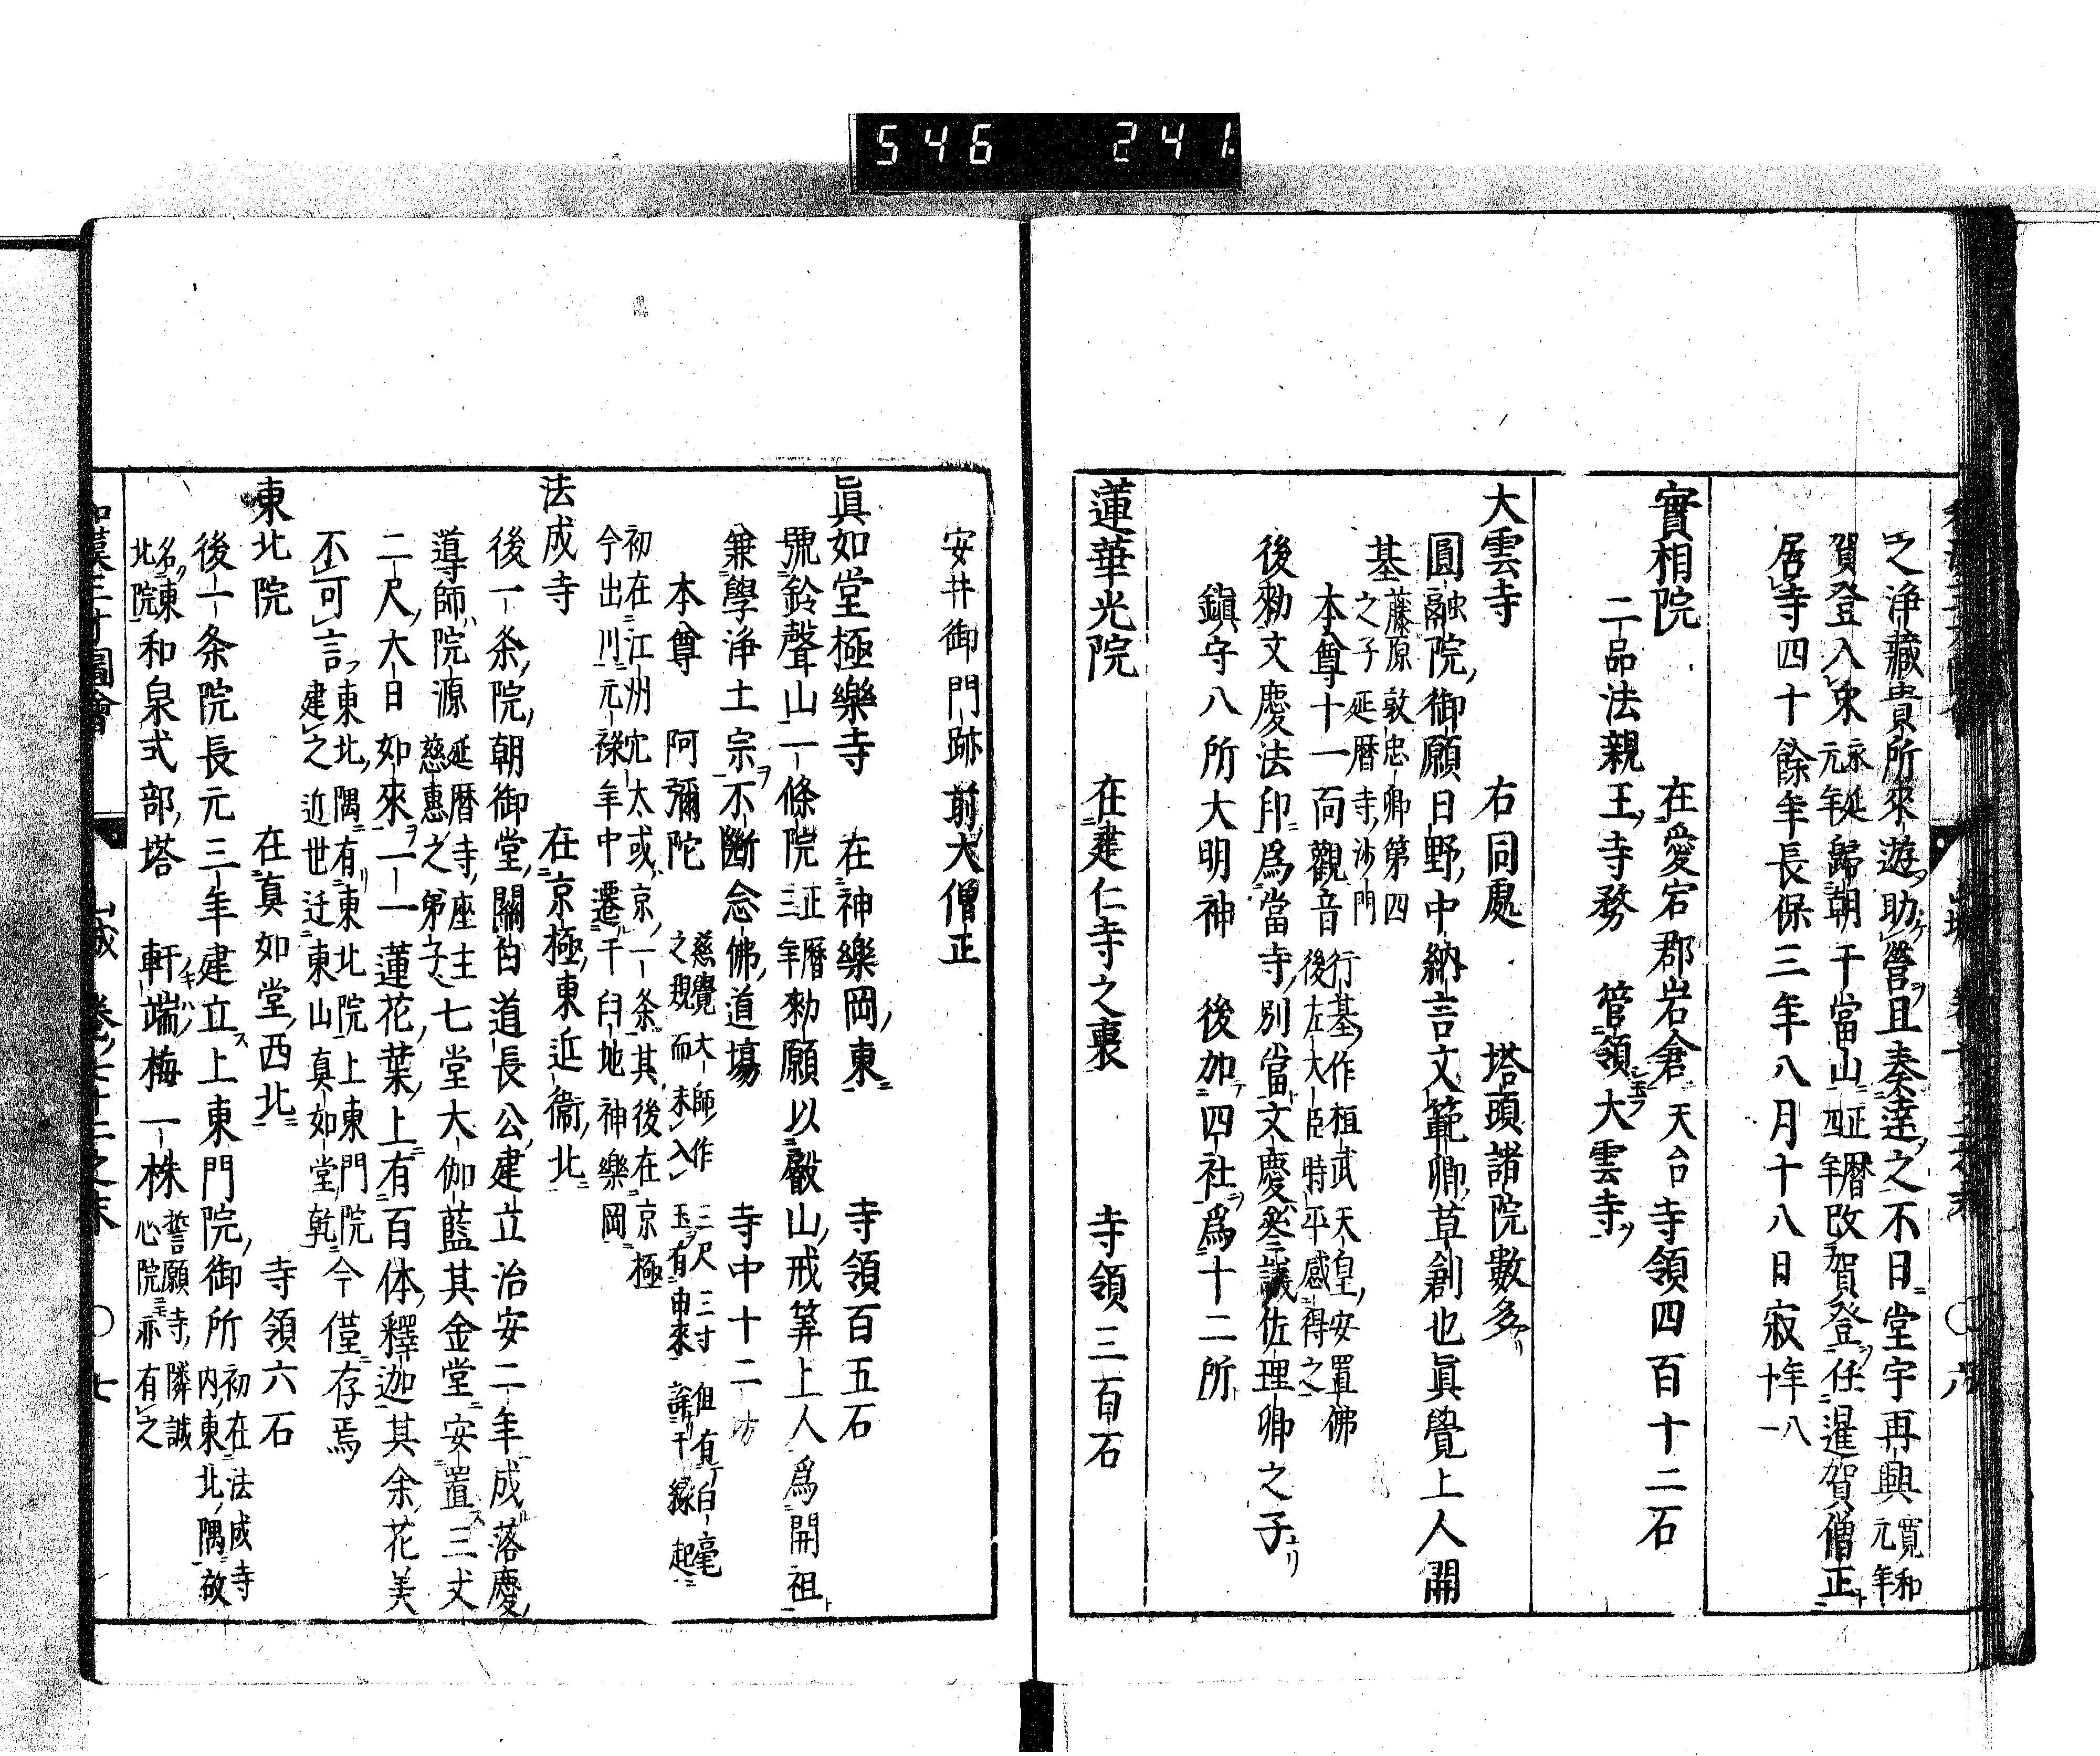 546 241
之浄藏貴所來遊助營且奏達之不日堂宇再興寛和元年
賀登入宋永延元年歸朝于當山正暦四年改賀登任暹賀僧正
居寺四十餘年長保三年八月十八日寂年八十一
實相院 在愛宕郡岩倉天台 寺領四百十二石
二品法親王寺務 管領大雲寺
大雲寺 右同處 塔頭諸院數多
圓融院御願日野中納言文範卿草創也眞覺上人開
基藤原敦忠卿第四之子延暦寺沙門
本尊十一面觀音行基作桓武天皇安置佛後左大臣時平感得之
後勅文慶法印爲當寺別當文慶參議佐理卿之子
鎮守八所大明神 後加四社爲十二所
蓮華光院 在建仁寺之裏 寺領三百石
安井御門跡前大僧正
眞如堂極樂寺 在神樂岡東 寺領百五石
號鈴聲山一條院正暦三年勅願以叡山戒筭上人爲開祖
兼學浄土宗不斷念佛道場 寺中十二坊
本尊 阿彌陀 慈覺大師作三尺三寸但有白毫
初在江州
今出川元禄年中遷于臼地神樂岡
法成寺 在京極東近衞北
後一条院朝御堂關白道長公建立治安二年成落慶
導師院源延暦寺座主慈惠之弟子七堂大伽藍其金堂安置三丈
二尺大日如來一一蓮花葉上有百体釋迦其余花美
不可言東北隅有東北院上東門院建之近世迁東山真如堂乾今僅存焉
東北院 在真如堂西北 寺領六石
後一条院長元三年建立上東門院御所初在法成寺内東北隅故
名東北院和泉式部塔 軒端梅一株誓願寺隣誠心院亦有之
和漢三才圖會 山城 卷七十二之末 ○七